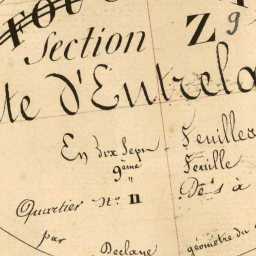 Section Z 9
te d'Entrela
En dix Sept Feuilles
9ème Feuille
Quartier N° n
par
géomètre du